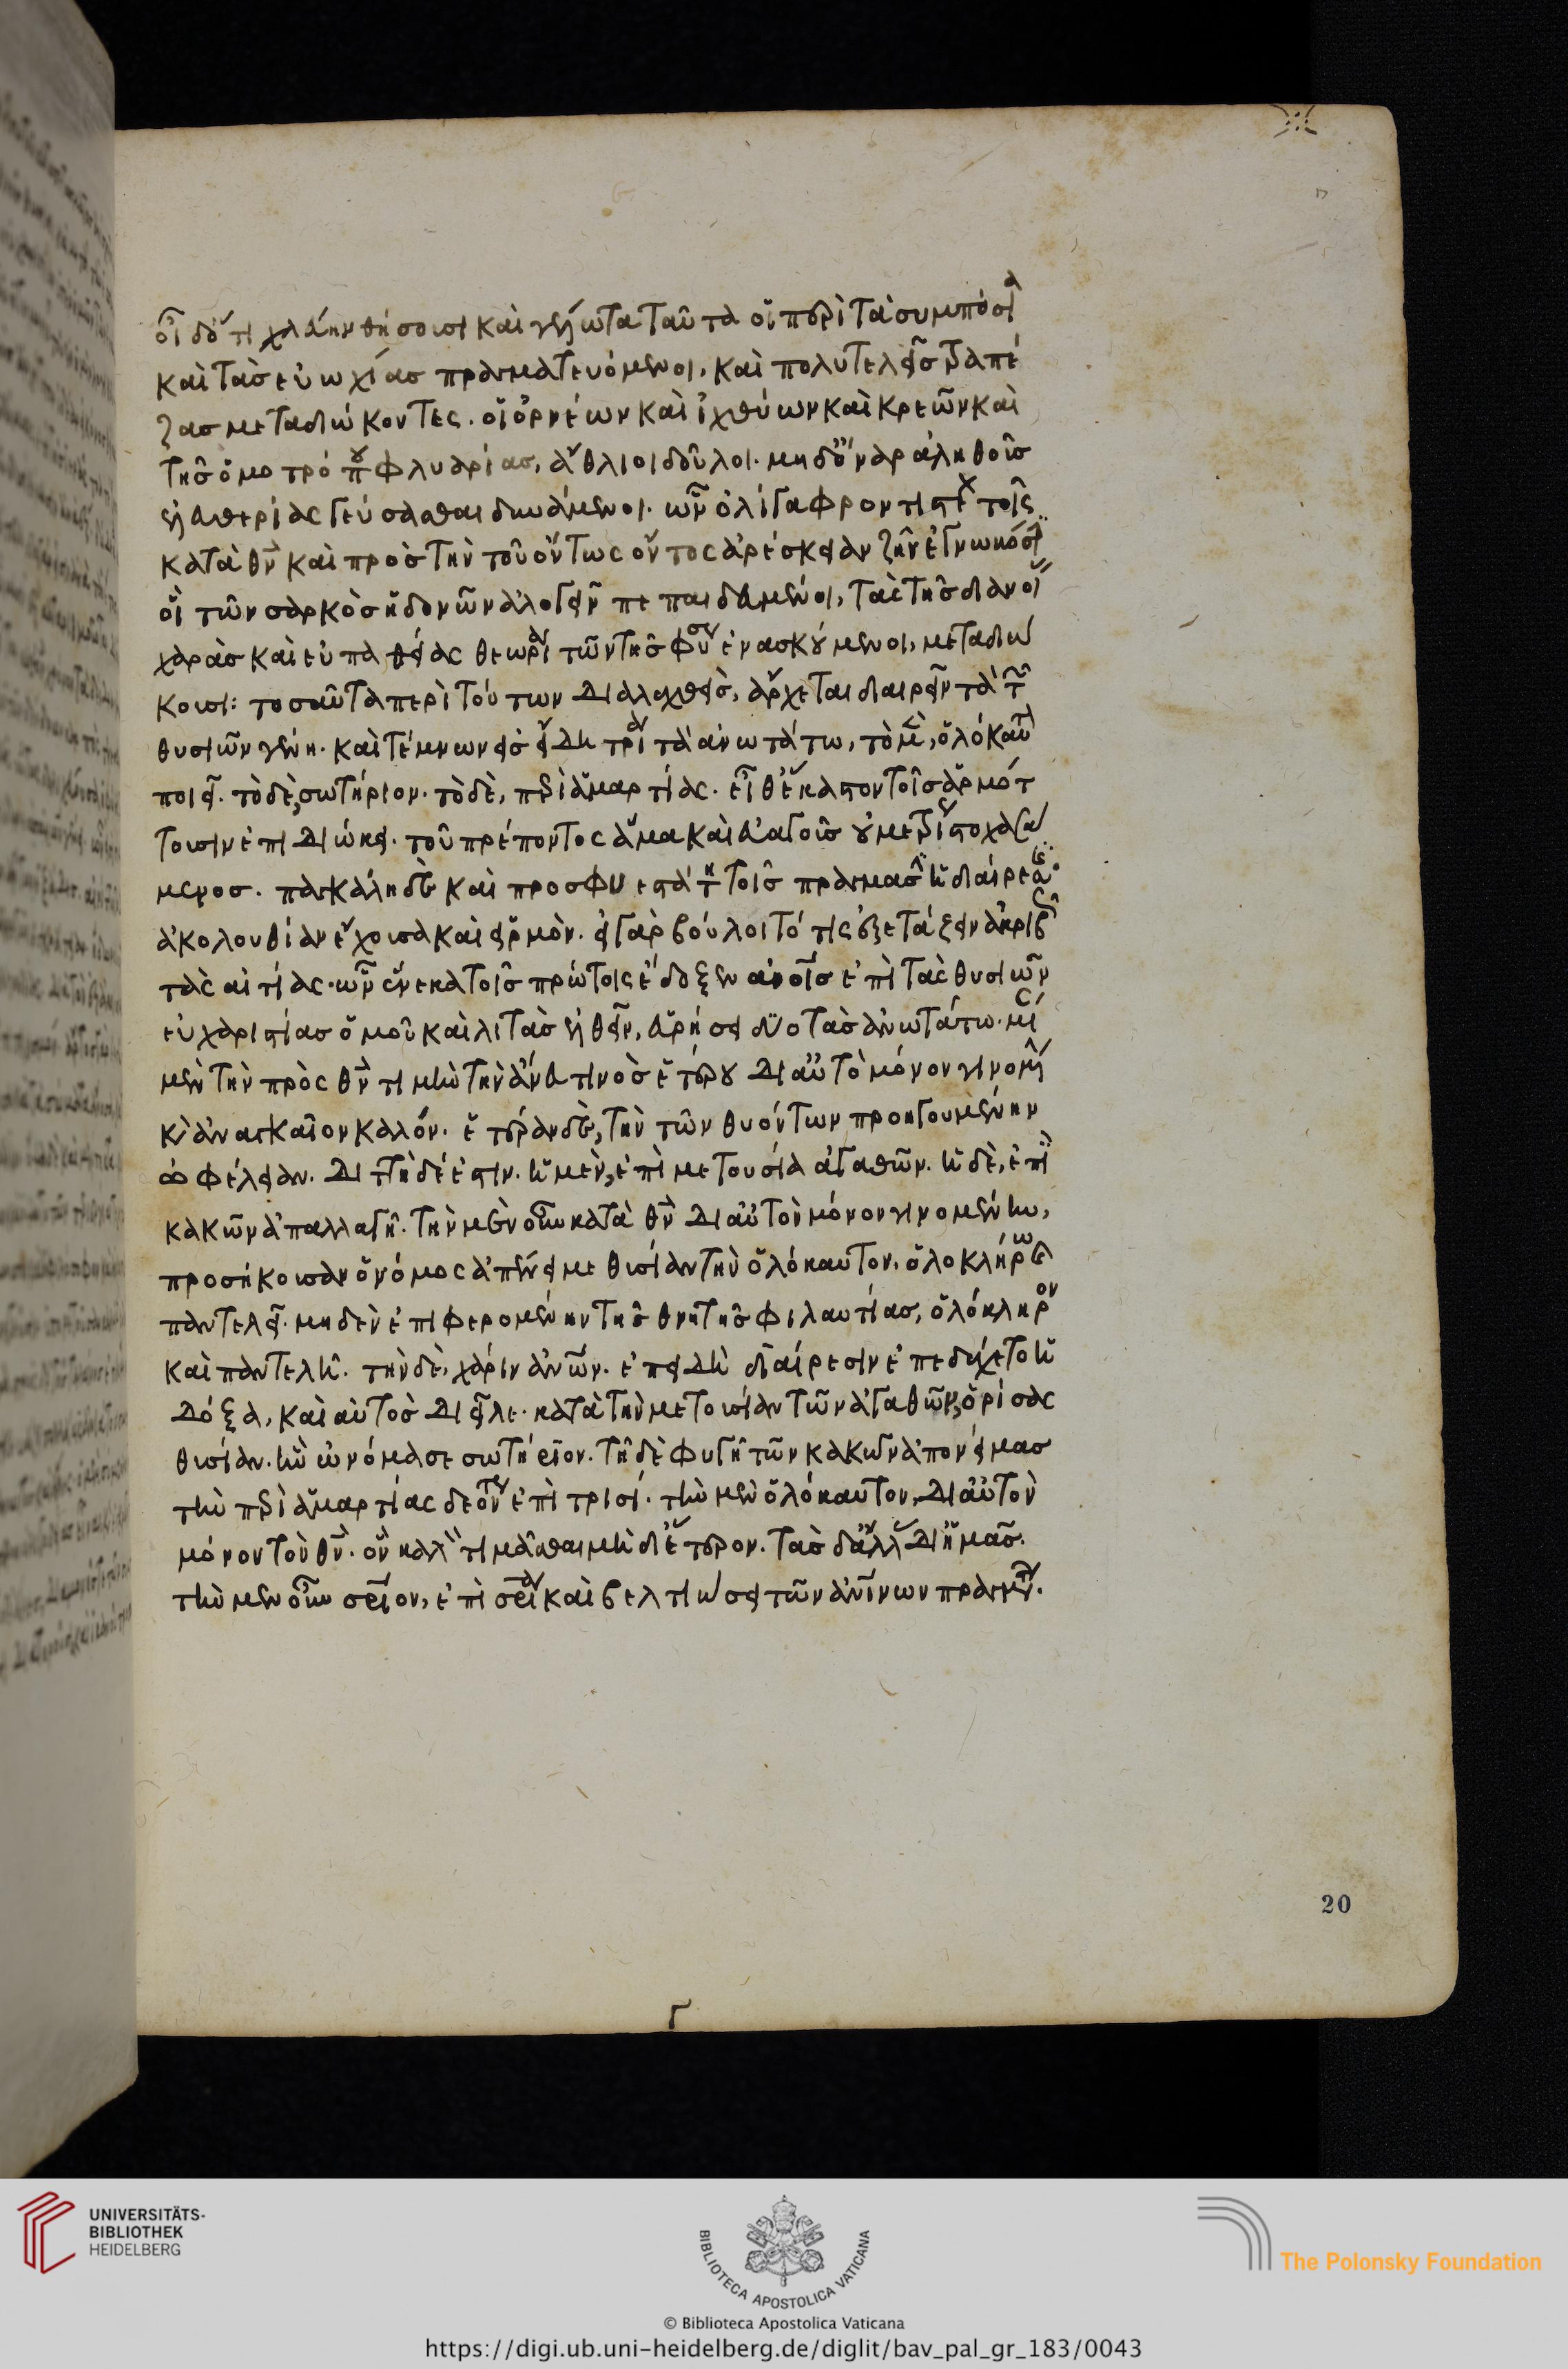 οἱ δ' ἔτι χλεύην θήσουσι καὶ γέλωτα ταῦτα οἱ περὶ τὰ συμπόσια
καὶ τὰς εὐωχίας πραγματευόμενοι, καὶ πολυτελεῖς τραπέ
ζας μεταδιώκοντες. οἱ ὀρνέων καὶ ἰχθύων καὶ κρεῶν καὶ
τῆς ὁμοτρόπου φλυαρίας, ἄθλιοι δοῦλοι. μηδ' ὄναρ ἀληθοῦς
ἐλευθερίας γεύσασθαι δυνάμενοι. ὧν ὀλίγα φροντιστέον τοῖς
κατὰ θν καὶ πρὸς τὴν τοῦ ὄντως ὄντος ἀρέσκειαν ζῆν ἐγνωκόσι
οἳ τῶν σαρκὸς ἡδονῶν ἀλογεῖν πεπαιδευμένοι, τὰς τῆς διανοί
χαρὰς καὶ εὐπαθείας θεωρίαν τῶν τῆς φύσεως ἐνασκούμενοι, μεταδιώ
κουσι: τοσαῦτα περὶ τούτων διαλεχθεὶς, ἄρχεται διαιρεῖν τὰ τῶν
θυσιῶν γένη. καὶ τέμνων εἰς εἴδη τρία τὰ ἀνωτάτω, τὸ μὲν, ὁλόκαυτ
ποιεῖ. τὸ δὲ, σωτήριον. τὸ δὲ, περὶ ἁμαρτίας. εἶθ' ἕκαστον τοῖς ἁρμότ
τουσιν ἐπιδιώκει. τοῦ πρέποντος ἅμα καὶ εὐαγοῦς οὐ μετρίως στοχασά
μενος. παγκάλη δὲ καὶ προσφυεστάτη τοῖς πράγμασιν ἡ διαίρεσις
ἀκολουθίαν ἔχουσα καὶ εἱρμὸν. εἰ γὰρ βούλοιτό τις ἐξετάζειν ἀκριβῶς
τὰς αἰτίας. ὧν ἕνεκα τοῖς πρώτοις ἔδοξεν ανοις ἐπὶ τὰς θυσιῶν
εὐχαριστίας ὁμοῦ καὶ λιτὰς ἐλθεῖν, εὑρήσει δύο τὰς ἀνωτάτω. μί
μὲν τὴν πρὸς θν τιμὴν τὴν ἄνευ τινὸς ἑτέρου δι' αὐτὸ μόνον γινομέν
κὶ ἀναγκαῖον καλόν. ἑτέραν δὲ, τὴν τῶν θυόντων προηγουμένην
ὠφέλειαν. διττὴ δέ ἐστιν. ἡ μὲν, ἐπὶ μετουσία ἀγαθῶν. ἡ δὲ, ἐπὶ
κακῶν ἀπαλλαγῇ. τὴν μὲν οὖν κατὰ θν δι' αὐτὸν μόνον γινομένην,
προσήκουσαν ὁ νόμος ἀπένειμε θυσίαν τὴν ὁλόκαυτον. ὁλοκλήρω
παντελεῖ. μηδὲν ἐπιφερομένην τῆς θνητῆς φιλαυτίας, ὁλόκληρον
καὶ παντελῆ. τὴν δὲ, χάριν ανων. ἐπειδὴ διαίρεσιν ἐπεδέχετο ἡ
δόξα, καὶ αὐτὸς διεῖλε. κατὰ τὴν μετουσίαν τῶν ἀγαθῶν, ὁρίσας
θυσίαν. ἣν ὠνόμασε σωτήριον. τῇ δὲ φυγῇ τῶν κακῶν ἀπονείμας
τὴν περὶ ἁμαρτίας δεόντως ἐπὶ τρισί. τὴν μὲν ὁλόκαυτον, δι' αὐτὸν
μόνον τὸν θν. ὃν καλὸν τιμᾶσθαι μὴ δι' ἕτερον. τὰς δ' ἄλλας δι' ἡμᾶς.
τὴν μὲν οὖν σριον, ἐπὶ σρίαν καὶ βελτιώσει τῶν ανίνων πραγμάτων.
20
UNIVERSITÄTS-
BIBLIOTHEK
HEIDELBERG
BIBLIOTECA APOSTOLICA VATICANA
The Polonsky Foundation
© Biblioteca Apostolica Vaticana
https://digi.ub.uni-heidelberg.de/diglit/bav_pal_gr_183/0043